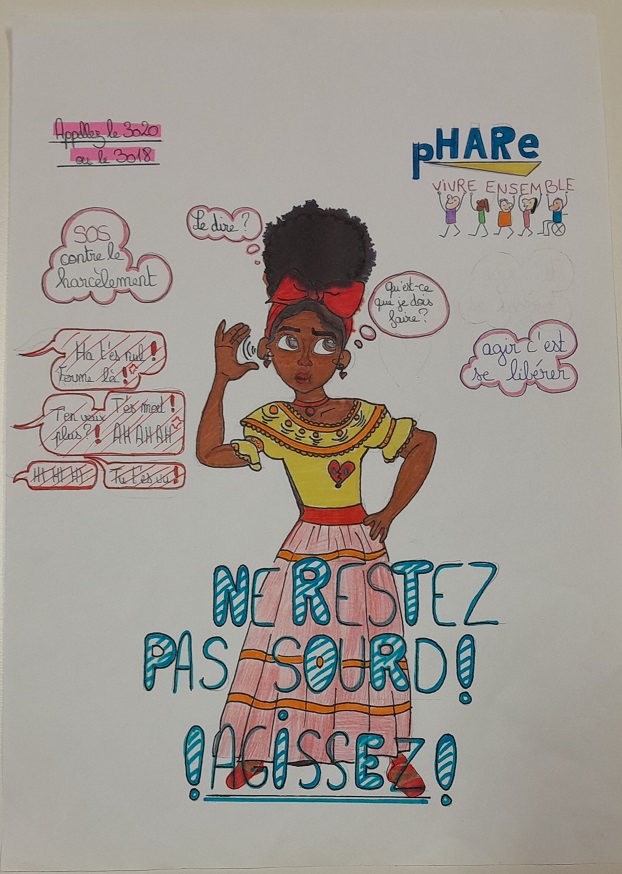 Appellez le 3020
ou le 3018
pHARe
VIVRE ENSEMBLE
SOS
contre le
harcèlement
Le dire ?
qu'est-ce
que je dois
faire ?
agir c'est
se libérer
Ha t'es nul !
Ferme là !
T'en veux
plus ?!
T'es mort !
AH AH AH
HI HI HI
Tu t'es vu !
NE RESTEZ
PAS SOURD !
! AGISSEZ !